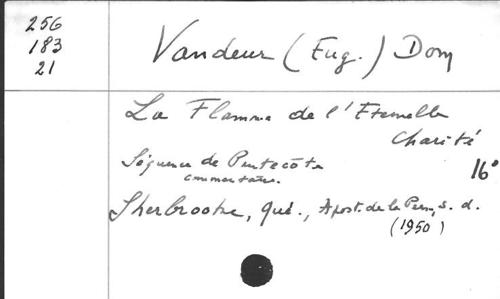 256
183
21
Vandeur (Eug.) Dom
La Flamme de l'Eternelle
Charité
Séquence de Pentecôte 16°
commentaire.
Sherbrooke, Qué., Apost. de la Presse, s. d.
(1950)